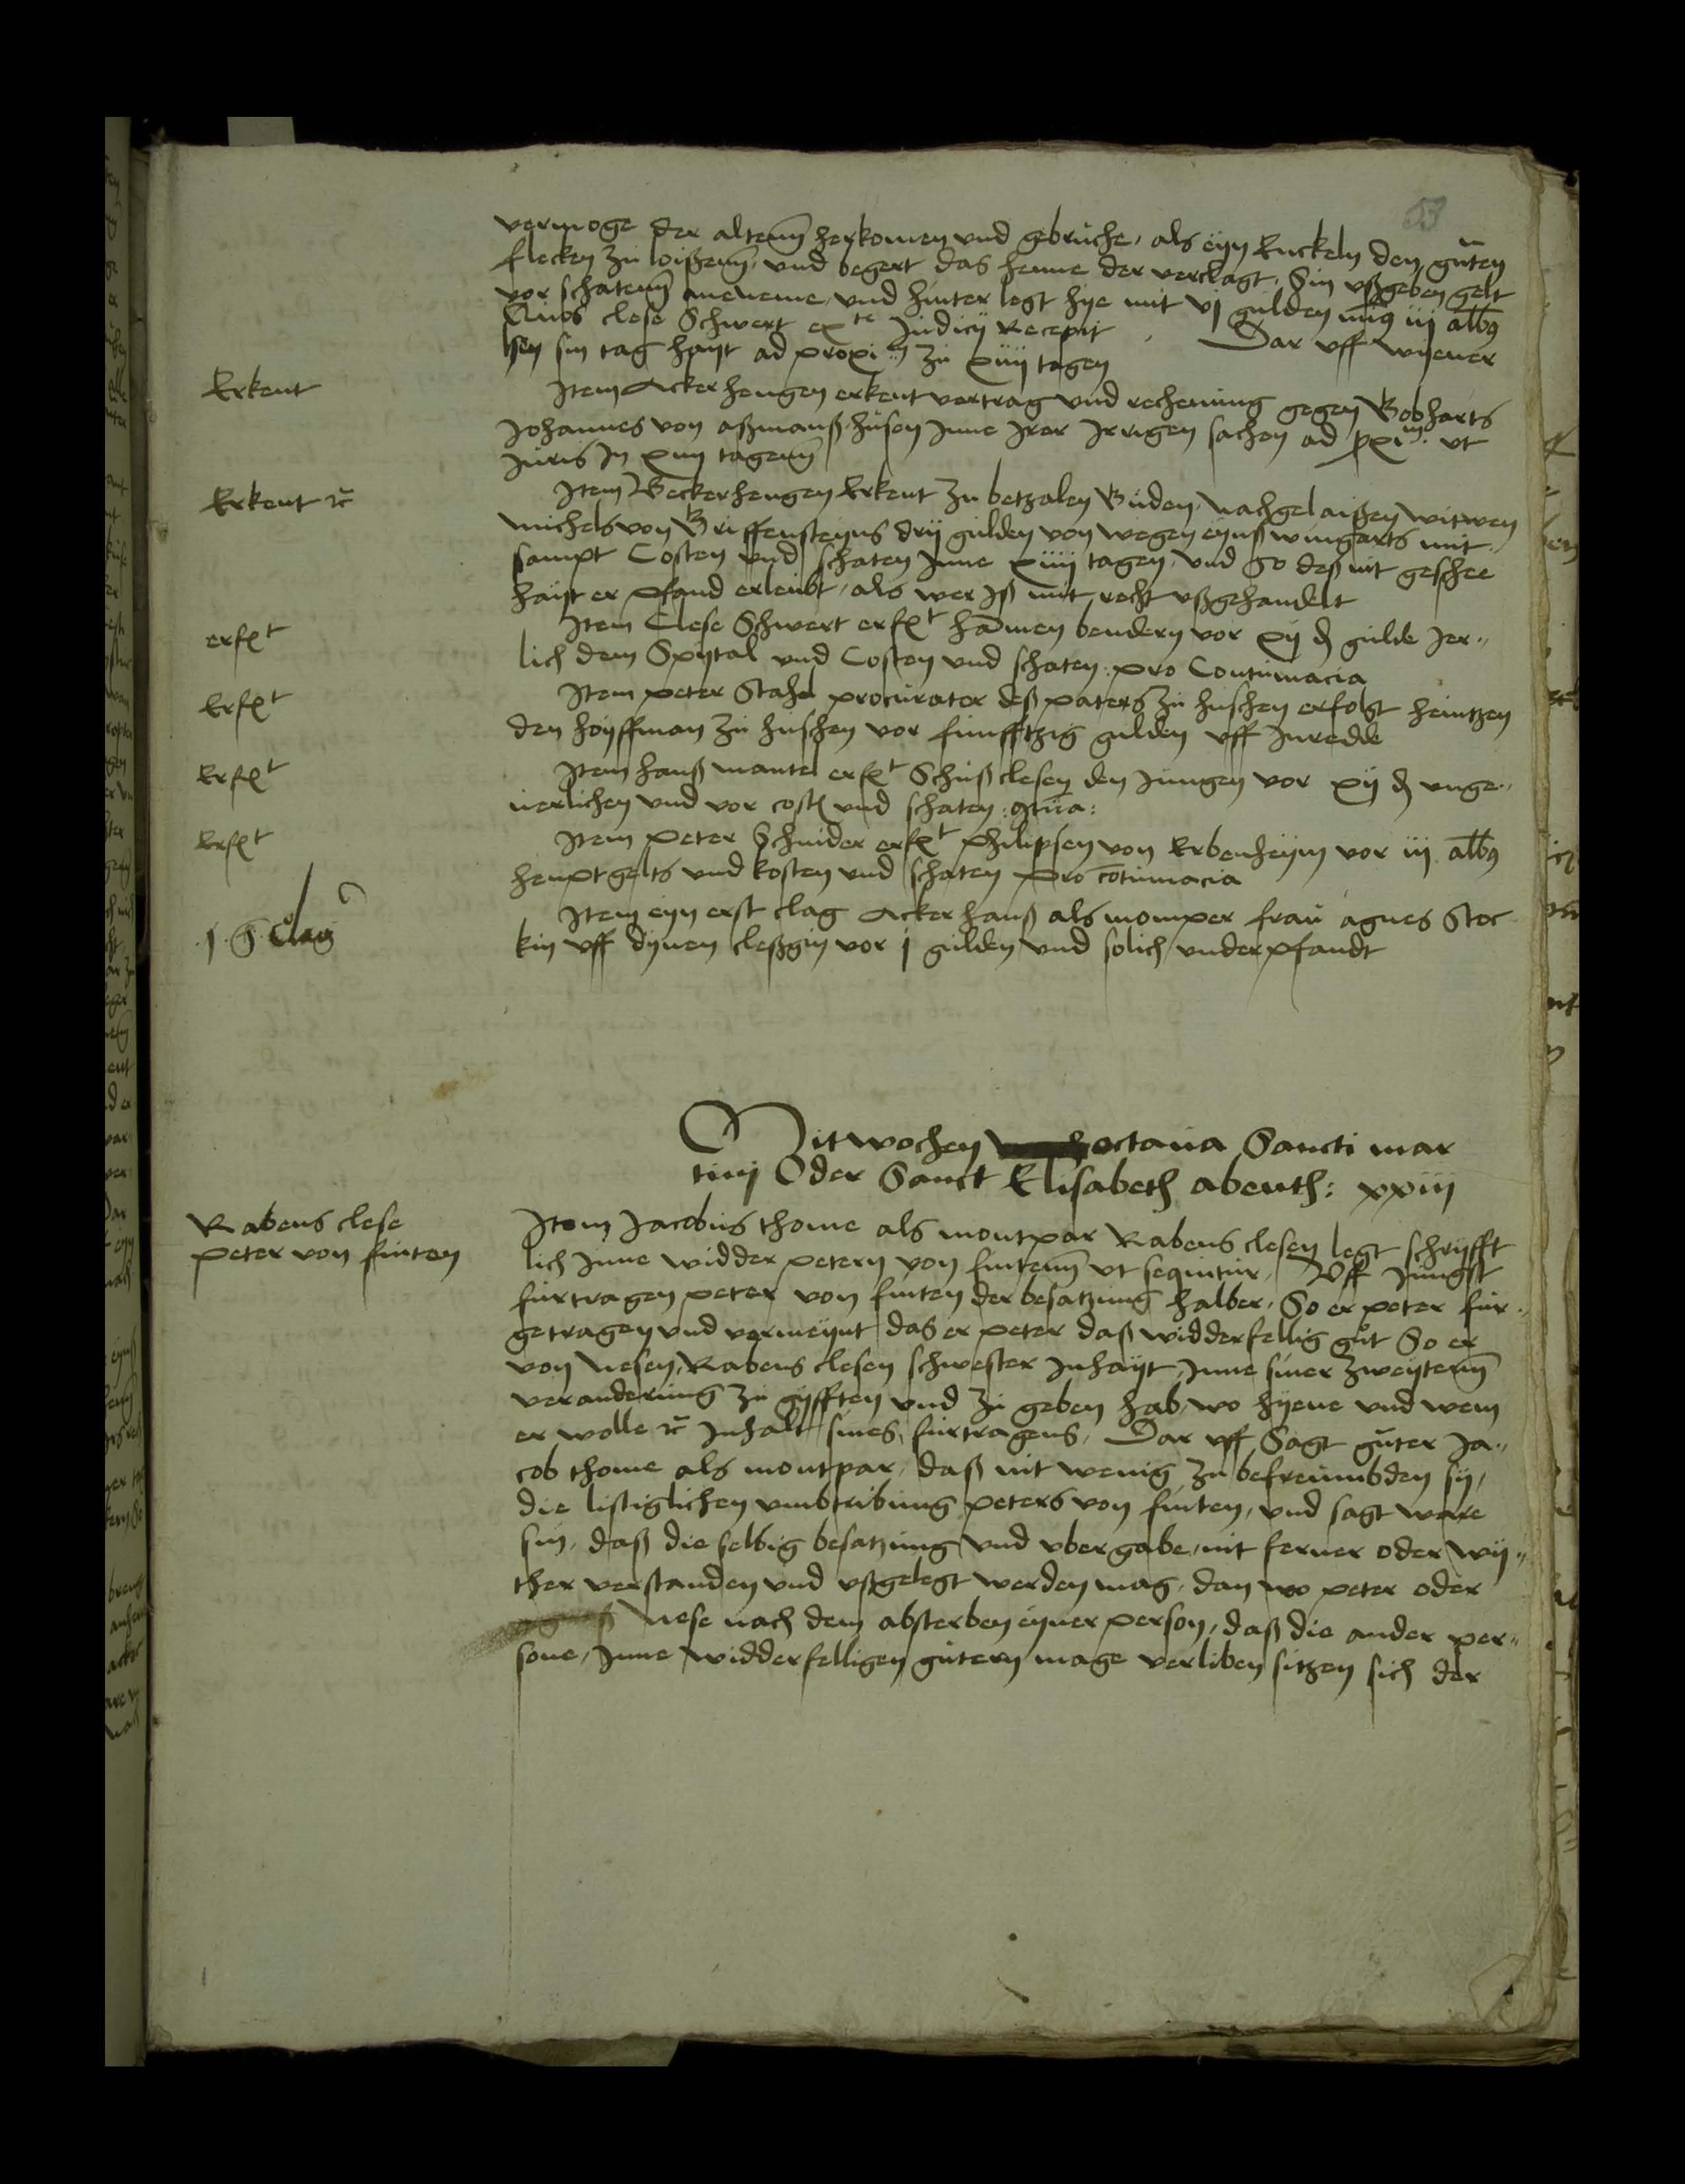 53
vermoge der altenn herkomen vnd gebruche, als eyn Enckeln den guten
flecken zu loißenn, vnd begert das henne der verclagt, Sin vßgeben gelt
vor schatenn anneme, vnd hinter legt hye mit vj gulden iij albus
Quos clese Schwert ex te Judicij Recepit Dar vff wyener
sin tag hayt ad proxim zu xiiij tagen
Erkent
Item Acker hengen erkent vertrag vnd rechenung gegen Bobharts
Johannes von aßmanßhusen Jnne Jrer Jrrigen sachen ad proxim vt
Juris Jn xiiij tagenn
Erkent etc
Item Beckerhengen Erkent zu betzalen Buden, Nachgelaißen witwen
michels von Griffensteyns drij gulden von wegen eynß wingarts mit
sampt Costen vnd schaten Jnne xiiij tagen, vnd so deß nit geschee
hayt er pfand erleubt, als wer Jß mit recht vßgehandelt
erfolgt
Item Clese Schwert erfolgt hāmen bendern vor xij d gulde Jer
lich dem Spytal vnd Costen vnd schaten: pro Contumacia
Erfolgt
Item peter Stahel procurator deß paters zu huschen erfolgt heintzen
den hoyffman zu huschen vor funfftzig gulden vff Jnredde
Erfolgt
Item hanß mantel erfolgt Schuß clesen den Jungen vor xij d vnge
uerlichen vnd vor cost vnd schaten
Erfolgt
Item peter Schnider erfolgt Philipsen von Erbenheym vor iij albus
heuptgelts vnd kosten vnd schaten pro cotumacia
j. S. Clag
Item eyn erst clag Acker hanß als momper frau agnes Stoc
kin vff dynen cleßgin vor j gulden vnd solich vnderpfandt
Mitwochen octaua Sancti mar
tinj Oder Sanct Elisabeth abenth: xxiij
Rabens clese
peter von finten
Item Jacobus thome als montpar Rabens clesen legt schryfft
lich Jnne widder petern von fintenn vt sequitur, Vff Jungst
furtragen peter von finten der besatzung halber, So er peter fur
getragen vnd vermeynt das er peter daß widderfellig gut So er
von Nesen, Rabens clesen schwester Jnhayt, Jnne siner zweytenn
veranderung zu gyfften vnd zu geben hab, wo hyene vnd wem
er wolle etc Jnhalt sines furtragens, Dar vff Sagt guter Ja
cob thome als montpar, daß nit wenig zu befreumbden sy,
die listiglichen vmbtribung peters von finten, vnd sagt ware
sin, daß die selbig besatzung vnd vbergabe, nit ferner oder wy
ther verstanden vnd vßgelegt werden mag, dan wo peter oder
Nese nach dem absterben eyner person, daß die ander per
sone, Jnne widderfelligen gutern mage verliben sitzen sich der